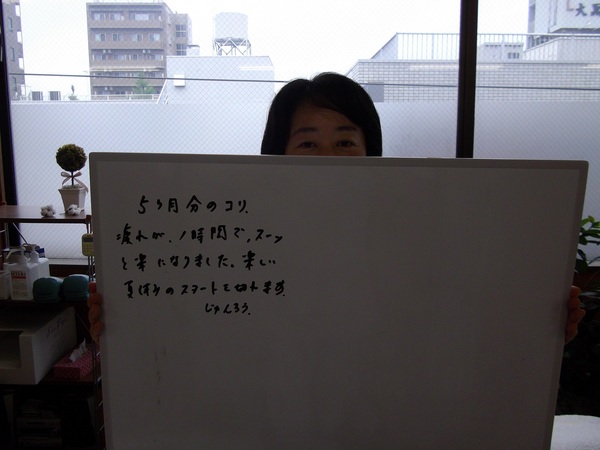 5ヶ月分のコリ、
疲れが、1時間で、スーッ
と楽になりました。楽しい
夏休みのスタートを切れます。
じゅんろう、
大